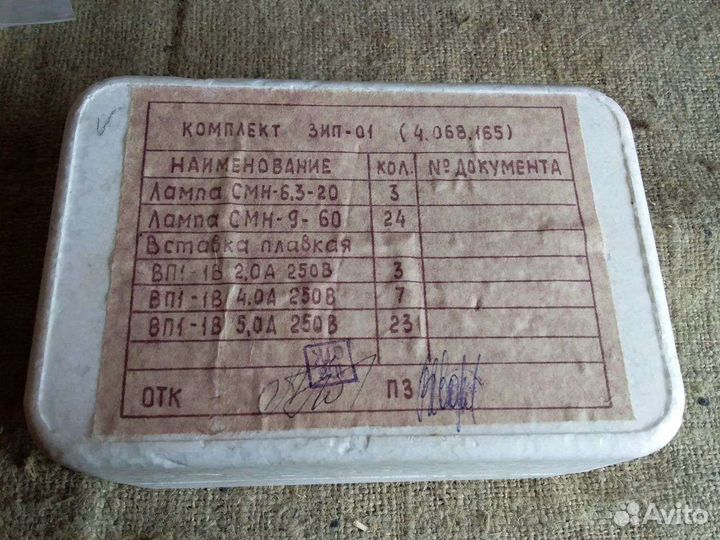 КОМПЛЕКТ ЗИП-01 (4.068.165)
НАИМЕНОВАНИЕ КОЛ. № ДОКУМЕНТА
Лампа СМН-6,3-20 3
Лампа СМН-9-60 24
Вставка плавкая
ВП1-1В 2,0А 250В 3
ВП1-1В 4,0А 250В 7
ВП1-1В 5,0А 250В 23
ОТК ПЗ
Avito